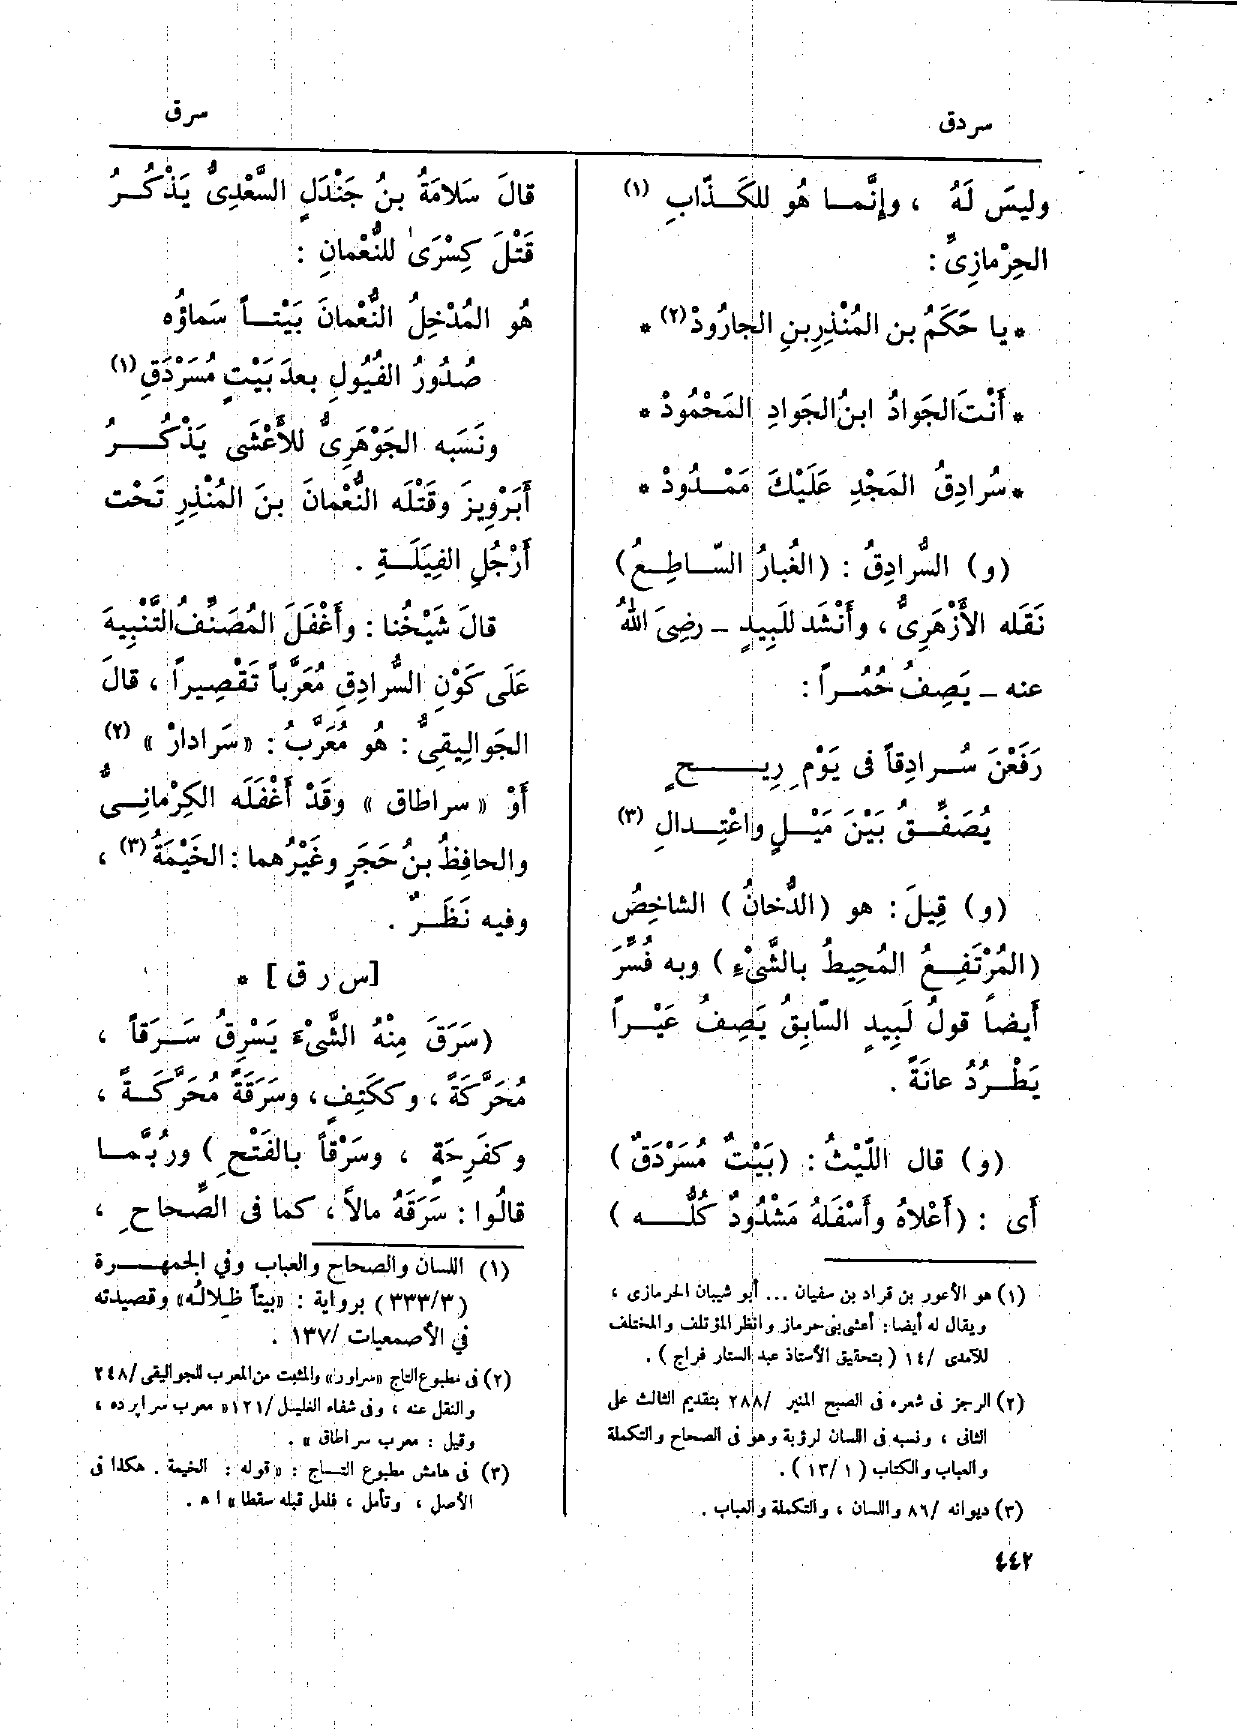 سردق
سرق
وليسَ لَهُ ، وإِنَّما هُو للكَذّابِ (١)
الحِرْمازِىِّ :
* يا حَكَمُ بن المُنْذِرِ بنِ الجارُودْ (٢) *
* أَنْتَ الجَوادُ ابنُ الجَوادِ المَحْمُودْ *
* سُرادِقُ المَجْدِ عَلَيْكَ مَمْدُودْ *
(و) السُّرادِقُ : (الغُبارُ السّاطِعُ)
نَقَله الأَزْهَرِىُّ ، وأَنْشَد للَبِيدٍ ـ رضِىَ اللهُ
عنه ـ يَصِفُ حُمُراً :
رَفَعْنَ سُرادِقاً فى يَوْمِ رِيحٍ
يُصَفَّقُ بَيْنَ مَيْلٍ واعْتِدالِ (٣)
(و) قِيلَ : هو (الدُّخانُ) الشاخِصُ
(المُرْتَفِعُ المُحِيطُ بالشَّىْءِ) وبه فُسِّرَ
أَيضاً قولُ لَبِيدٍ السّابِقُ يَصِفُ عَيْراً
يَطْرُدُ عانَةً .
(و) قال اللَّيْثُ : (بَيْتٌ مُسَرْدَقٌ)
أَى : (أَعْلاهُ وأَسْفَلهُ مَشْدُودٌ كُلُّه)
(١) هو الأعور بن قراد بن سفيان ... أبو شيبان الحرمازى ،
ويقال له أيضا : أعشى بنى حرماز وانظر المؤتلف والمختلف
للآمدى /١٤ (بتحقيق الأستاذ عبد الستار فراج) .
(٢) الرجز فى شعره فى الصبح المنير /٢٨٨ بتقديم الثالث على
الثانى ، ونسبه فى اللسان لرؤبة وهو فى الصحاح والتكملة
والعباب والكتاب (١ /١٣) .
(٣) ديوانه /٨٦ واللسان ، والتكملة والعباب .
٤٤٢
قالَ سَلامَةُ بنُ جَنْدَلٍ السَّعْدِىُّ يَذْكُرُ
قَتْلَ كِسْرَىٰ للنُّعْمانِ :
هُو المُدْخِلُ النُّعْمانَ بَيْتاً سَماؤُه
صُدُورُ الفُيُولِ بعدَ بَيْتٍ مُسَرْدَقِ (١)
ونَسَبه الجَوْهَرِىُّ للأَعْشَى يَذْكُرُ
أَبَرْوِيزَ وقَتْلَه النُّعْمانَ بنَ المُنْذِرِ تَحْت
أَرْجُلِ الفِيَلَةِ .
قالَ شَيْخُنا : وأَغْفَلَ المُصَنِّفُ التَّنْبِيهَ
عَلَى كَوْنِ السُّرادِقِ مُعَرَّباً تَقْصِيراً ، قالَ
الجَوالِيقِىُّ : هُو مُعَرَّبُ : «سَرادارْ» (٢)
أَوْ «سراطاق» وقَدْ أَغْفَلَه الكِرْمانِىُّ
والحافِظُ بنُ حَجَرٍ وغَيْرُهما : الخَيْمَةُ (٣) ،
وفيه نَظَرٌ .
[س ر ق] *
(سَرَقَ مِنْهُ الشَّىْءَ يَسْرِقُ سَرَقاً ،
مُحَرَّكَةً ، وككَتِفٍ ، وسَرَقَةً مُحَرَّكَةً ،
وكفَرِحَةٍ ، وسَرْقاً بالفَتْحِ) ورُبَّما
قالُوا : سَرَقَهُ مالاً ، كما فى الصِّحاحِ ،
(١) اللسان والصحاح والعباب وفي الجمهرة
(٣٣٣/٣) برواية : «بيتاً ظِلالُه» وقصيدته
في الأصمعيات /١٣٧ .
(٢) فى مطبوع التاج «سراور» والمثبت من المعرب للجواليقى /٢٤٨
والنقل عنه ، وفى شفاء الغليل /١٢١ «معرب سراپرده ،
وقيل : معرب سراطاق» .
(٣) فى هامش مطبوع التاج : «قوله : الخيمة . هكذا فى
الأصل ، وتأمل ، فلعل قبله سقطا» ا ه .